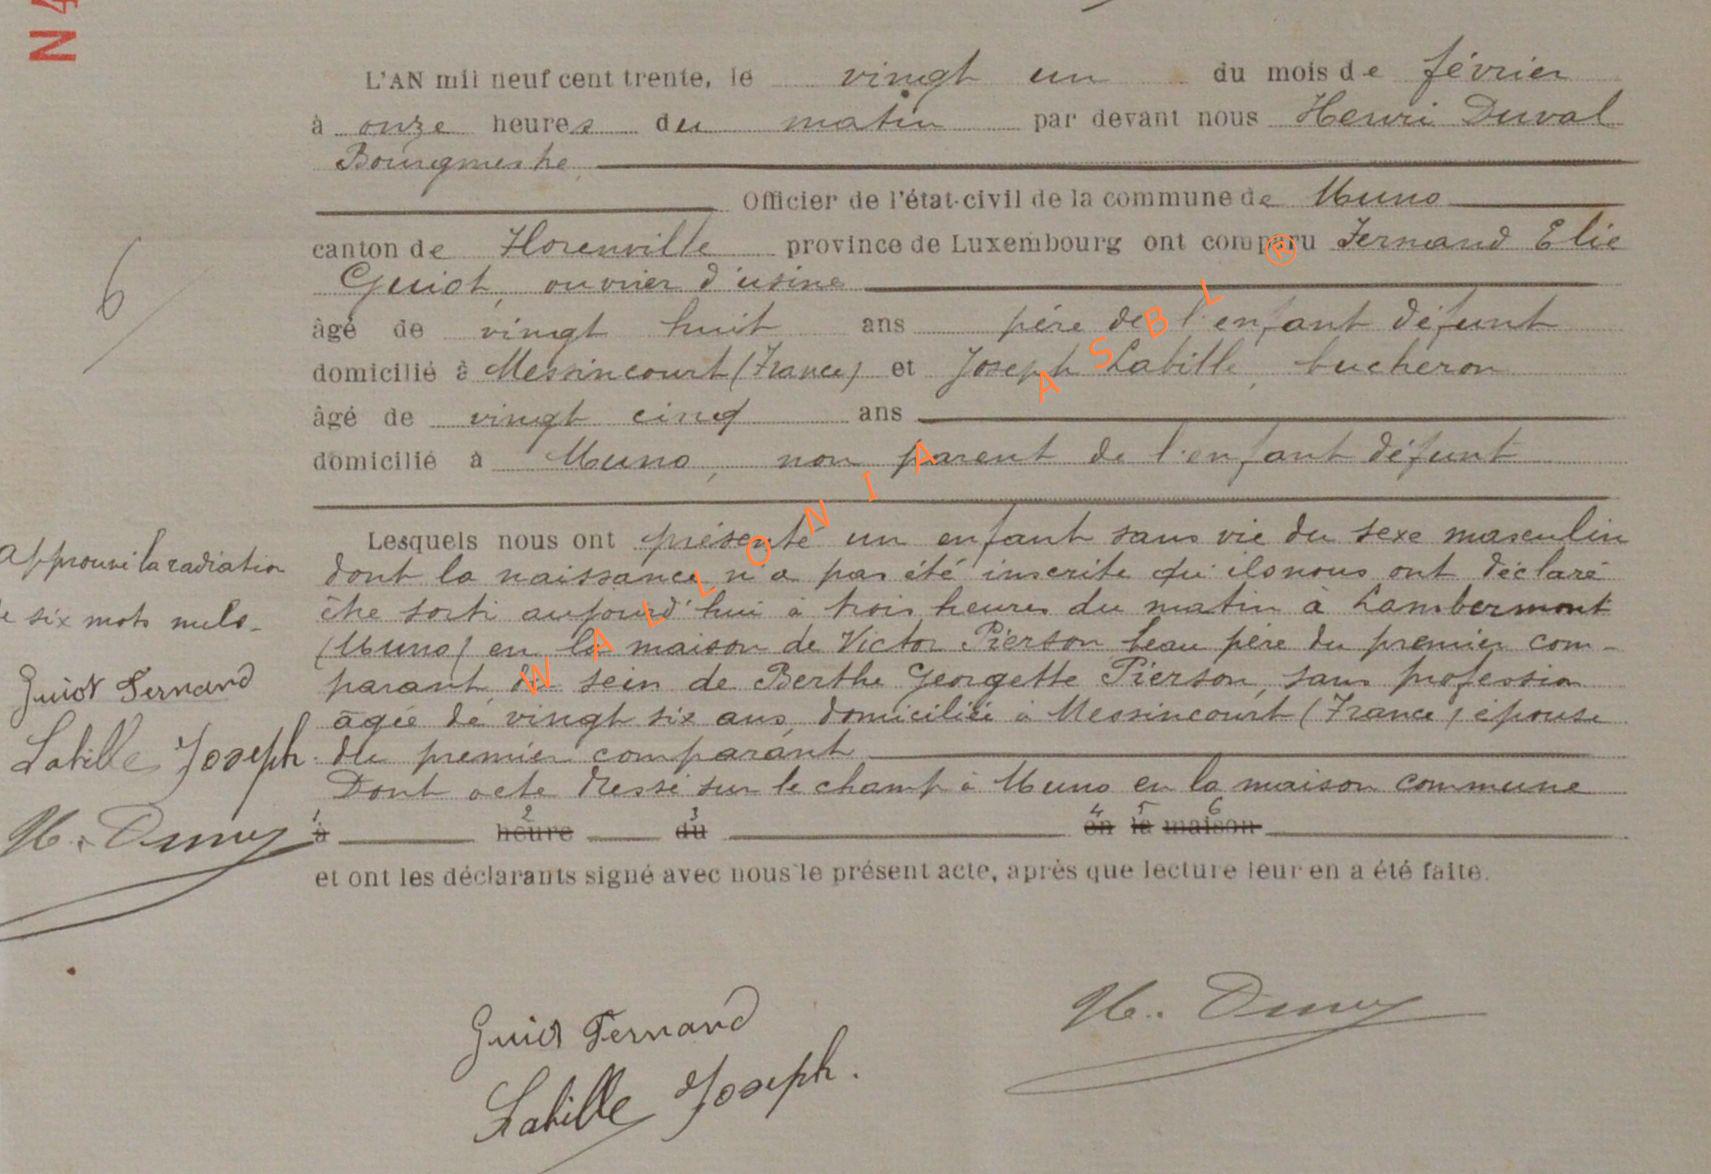 N4
L'AN mil neuf cent trente, le vingt un du mois de février
à onze heures du matin par devant nous Henri Duval
Bourgmestre
Officier de l'état-civil de la commune de Muno
canton de Florenville province de Luxembourg ont comparu Fernand Elie
Guiot, ouvrier d'usine
âgé de vingt huit ans père de l'enfant défunt
domicilié à Messincourt (France) et Joseph Labille, bucheron
âgé de vingt cinq ans
domicilié à Muno, non parent de l'enfant défunt
6
Lesquels nous ont présenté un enfant sans vie du sexe masculin
dont la naissance n'a pas été inscrite qu'ils nous ont déclaré
être sorti aujourd'hui à trois heures du matin à Lambermont
(Muno) en la maison de Victor Pierson beau père du premier com-
parant du sein de Berthe Georgette Pierson, sans profession
âgée de vingt six ans, domiciliée à Messincourt (France) épouse
du premier comparant
Dont acte dressé sur le champ à Muno en la maison commune
1 2 3 4 5 6
à heure du en la maison
et ont les déclarants signé avec nous le présent acte, après que lecture leur en a été faite.
Approuvé la radiation
de six mots nuls.
Guiot Fernand
Labille Joseph.
H. Duval
Guiot Fernand
Labille Joseph.
H. Duval
WALLONIA ASBL ®